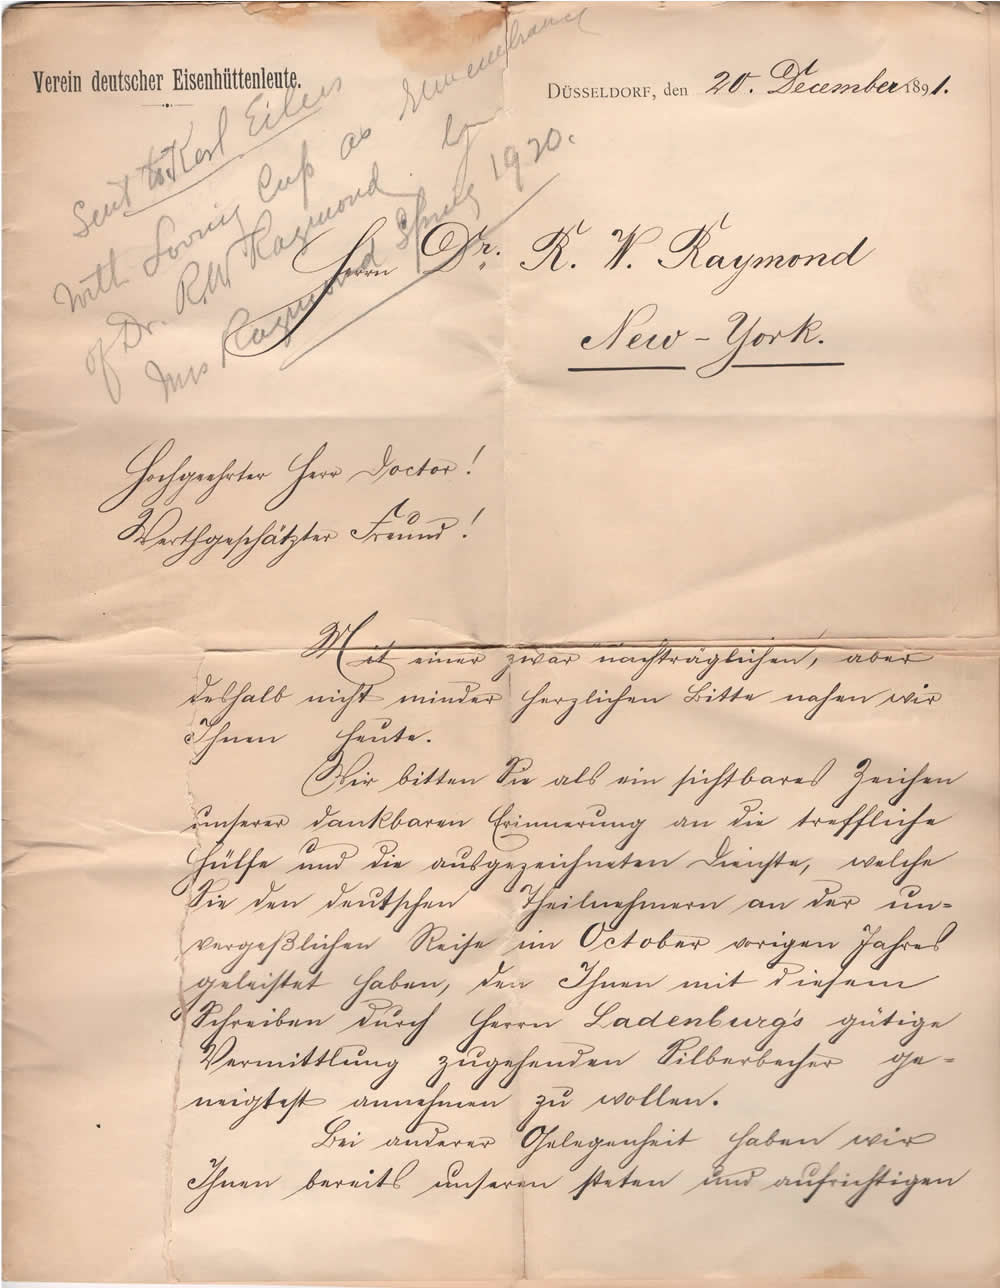 Verein deutscher Eisenhüttenleute.
DÜSSELDORF, den 20. December 1891.
Sent to Karl Eilers
With Loving Cup as Remembrance
of Dr. R.W. Raymond by
Mrs Raymond Spring 1920.
Herrn Dr. R. W. Raymond
New-York.
Hochgeehrter Herr Doctor!
Werthgeschätzter Freund!
Mit einer zwar nachträglichen, aber
deshalb nicht minder herzlichen Bitte nahen wir
Ihnen heute.
Wir bitten Sie als ein sichtbares Zeichen
unserer dankbaren Erinnerung an die treffliche
Hülfe und die ausgezeichneten Dienste, welche
Sie den deutschen Theilnehmern an der un=
vergeßlichen Reise im October vorigen Jahres
geleistet haben, den Ihnen mit diesem
Schreiben durch Herrn Ladenburg's gütige
Vermittlung zugehenden Silberbecher ge=
neigtest annehmen zu wollen.
Bei anderer Gelegenheit haben wir
Ihnen bereits unseren steten und aufrichtigen